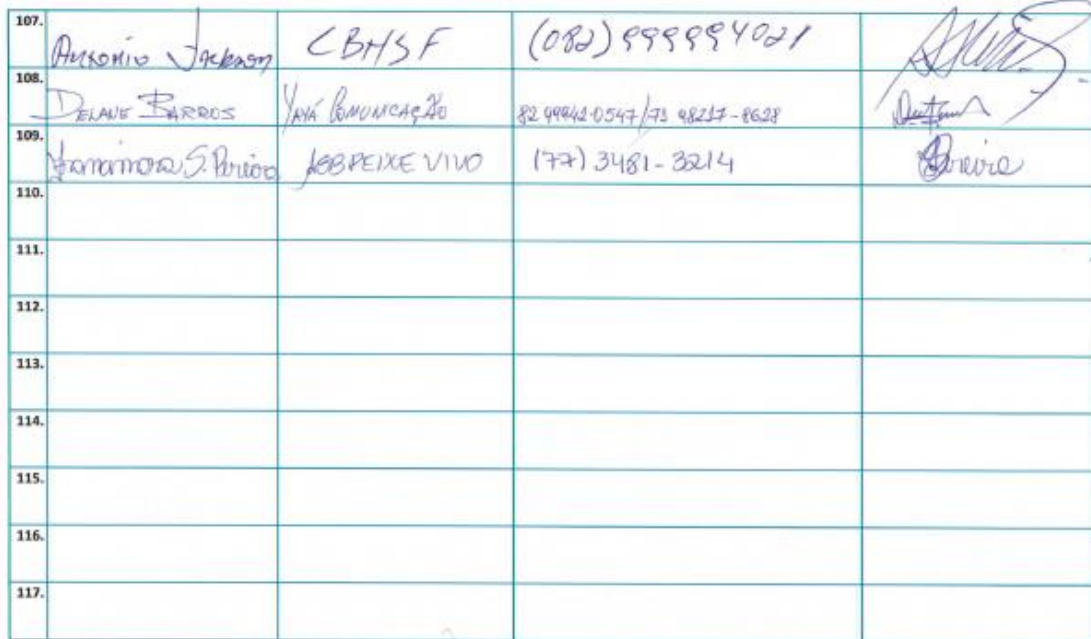 107. Antonio Jackson CBHSF (082) 999994021
108. DELANE BARROS YAYÁ COMUNICAÇÃO 82 99942-0547/73 98217-8628
109. S. Pereira AGB PEIXE VIVO (77) 3481-3214 Pereira
110.
111.
112.
113.
114.
115.
116.
117.